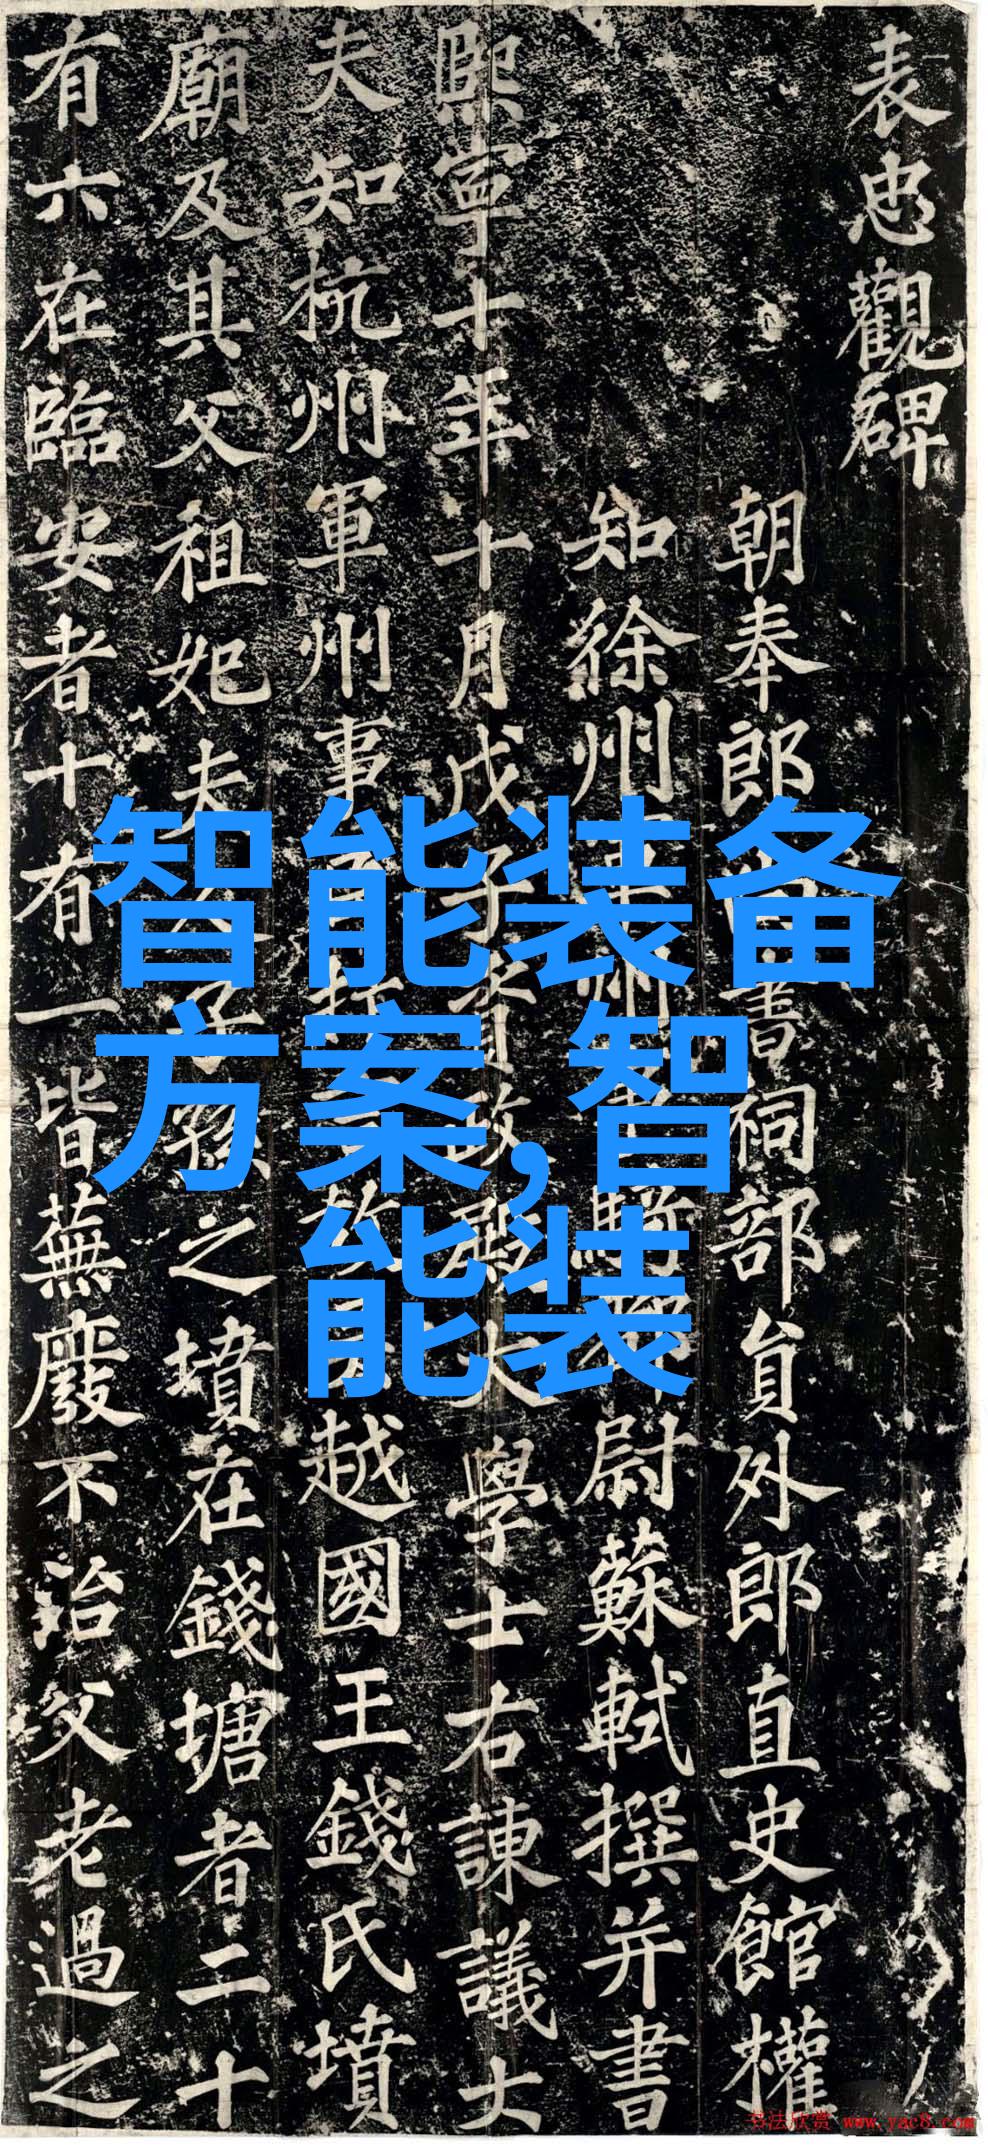 表忠觀碑
朝奉郎尚書祠部員外郎直史館權
知徐州軍州事騎都尉蘇軾撰并書
熙寧十年十月戊子資政殿大學士右諫議大
夫知杭州軍州事臣抃言故吳越國王錢氏墳
廟及其父祖妃夫人子孫之墳在錢塘者二十
有六在臨安者十有一皆蕪廢不治父老過之
智能装备
方案,智
能装
书法欣赏 www.yac8.com